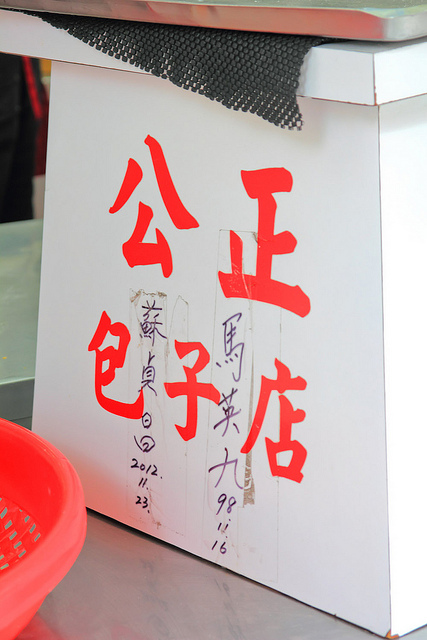 公正
包子店
蘇貞昌
2012.
11.
23.
馬英九
98
11.
16